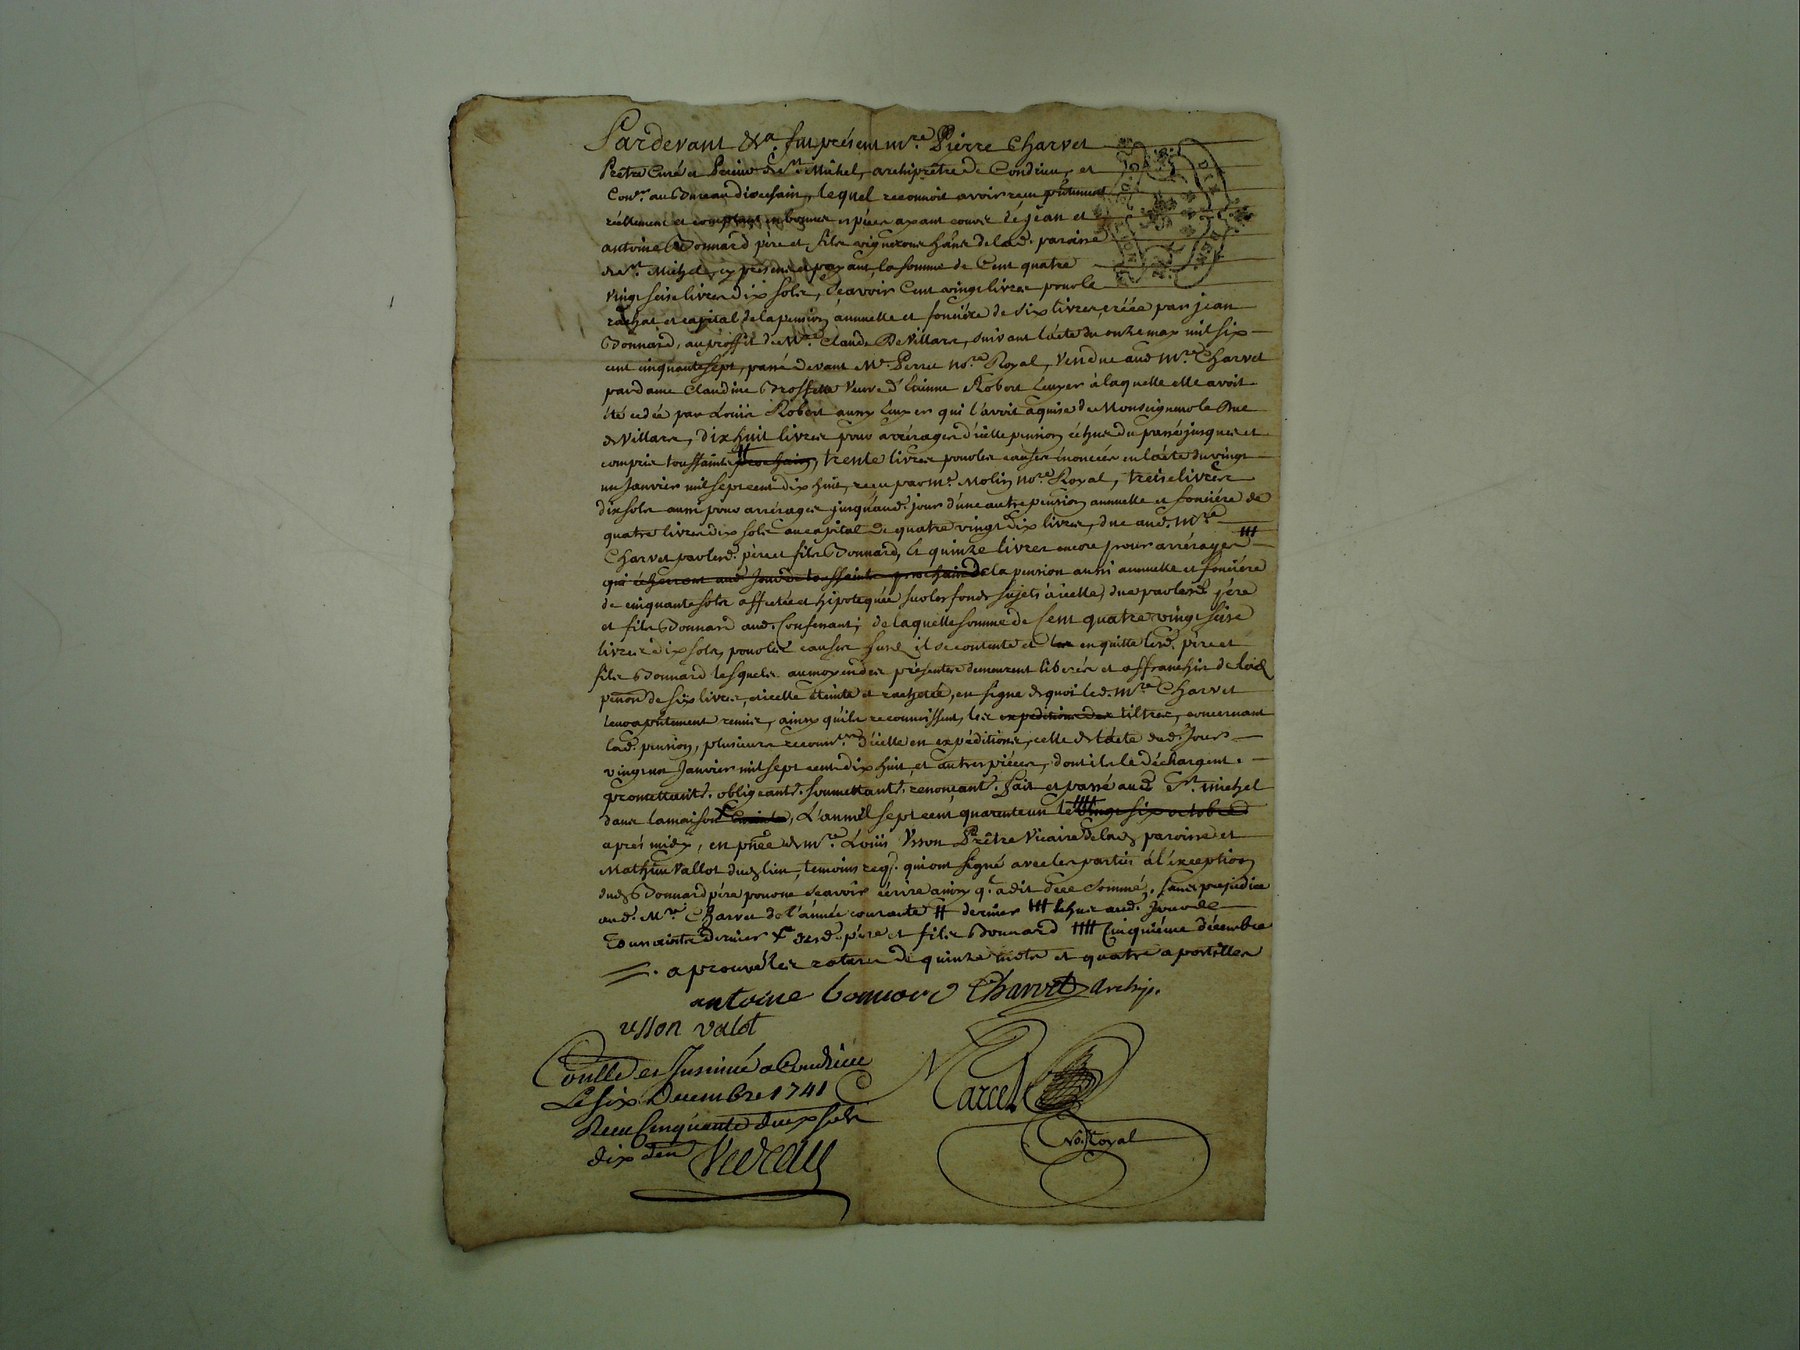 Pardevant &a. fut présent mre. Pierre Charvet
Prêtre Curé et de St. Michel, archiprêtre de Condrieu, et
Conr. au Bureau diocésain, lequel reconnoit avoir reçu
réellement et comptant en bonnes espèces ayant cours de jean et
antoine Bonnard père et fils vignerons hans de lad. paroisse
de St. Michel, cy présents et payant, la somme de Cent quatre
vingt seise livres dix sols, sçavoir Cent vingt livres pour le
rachat et capital de la pension annuelle et foncière de six livres, créée par jean
Bonnard, au proffit de Mre. Claude De Villars, suivant l'acte du onze may mil six
cent cinquante sept, passé devant Me. Perret nore. Royal, Vendue aud. Mre. Charvet
par dame Claudine Brossette Veuve d'Etienne Robert Luyer à laquelle elle avoit
été cédée par Louis Robert aussy Luyer qui l'avoit aquise de Monseigneur le Duc
de Villars, dix huit livres pour arrérages d'icelle pension échus du passé jusques et
compris toussaints prochain, trente livres pour les causes énoncées en l'acte du vingt
un Janvier mil sept cent dix huit, reçu par me. Molin nore. Royal, treise livres
dix sols aussi pour arrérages jusqu'aud. jour d'une autre pension annuelle et foncière de
quatre livres dix sols au capital de quatre vingt dix livres, due aud. Mre.
Charvet par lesd. père et fils Bonnard, & quinze livres encore pour arrérages
qui écherront aud. Jour de toussaints prochain de la pension aussi annuelle et foncière
de cinquante sols affectée et hipotequée sur les fonds sujets à icelle, due par lesd. père
et fils Bonnard aud. Confessant; de laquelle somme de Cent quatre vingt seise
livres dix sols, pour les causes susd. il se contente et en quitte lesd. père et
fils Bonnard lesquels au moyen des présentes demeurent libérés et affranchis de lad.
penon de six livres, icelle éteinte et rachetée, en signe de quoi led. mre. Charvet
leur a présentement remis, ainsy qu'ils reconnoissent, les expéditions des tiltres, concernant
lad. pension, plusieurs reconnes. d'icelle en expéditions, celle de l'acte dud. Jour
vingt un Janvier mil sept cent dix huit, et autres pièces, dont ils le déchargent.
promettants. obligeants. soumettants. renonçants. fait et passé aud. St. michel
dans la maison, L'an mil sept cent quarente un le vingt six octobre
après midy, en pnce de mre. Louis Usson Prêtre Vicaire de lad. paroisse et
Mathieu Vallot dud. lieu, temoins req. qui ont signé avec les parties à l'exception
dud. Bonnard père pour ne sçavoir écrire ainsy q'l a dit de ce sommé. sans préjudice
aud. Mre. Charvet de l'année courante # dernier ### échus aud. Jour de
Toussaints dernier desd. père et fils Bonnard #### Cinquième décembre
=. aprouvé les rature de quinze mots et quatre apostilles
antoine bonnard Charvet archip.
usson valot
Conllé et Insinué a Condrieu
Le six Decembre 1741
Reçu Cinquante deux sols
dix den
Marcel
No. Royal